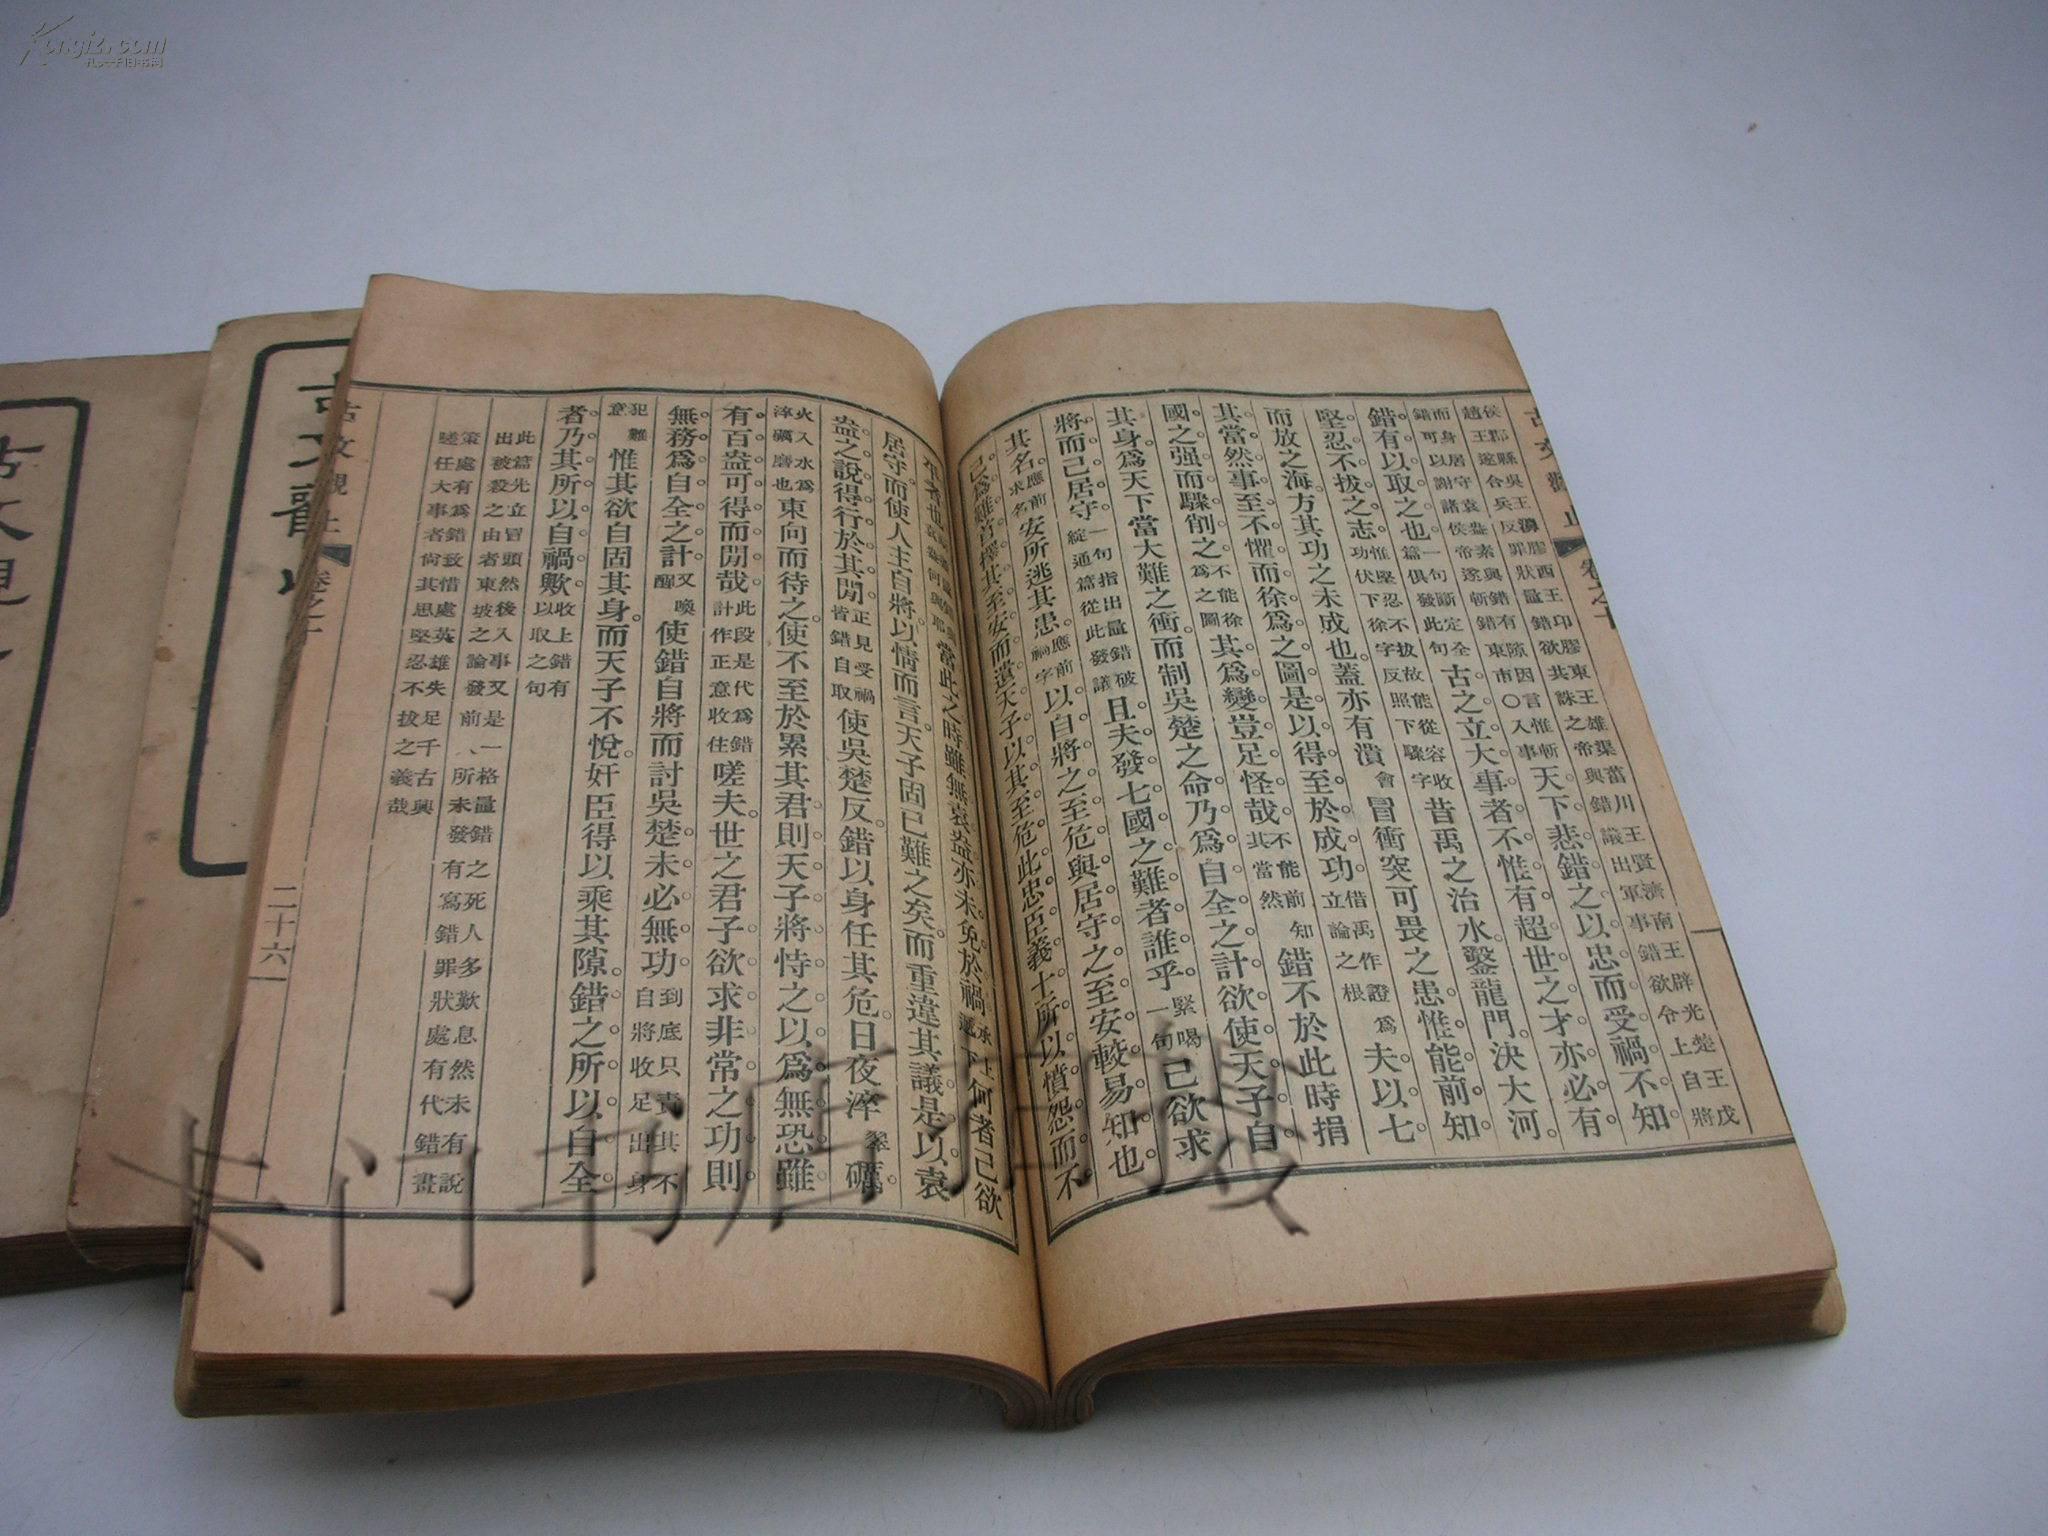 Kongfz.com
孔夫子旧书网
古文觀止
卷之十
侯郡縣吳王濞膠西王卬膠東王雄渠菑川王賢濟南王辟光楚王戊
趙王遂合兵反罪狀鼂錯欲共誅之帝與錯議出軍事錯欲令上自將
而身居守袁盎素與錯有隙因言惟斬
錯可以謝諸侯帝遂斬錯東市〇入事
天下悲錯之以忠而受禍不知
錯有以取之也
一句斷定全
篇俱發此句
古之立大事者不惟有超世之才亦必有
堅忍不拔之志
惟堅忍不拔故能從容收
功伏下徐字反照下驟字
昔禹之治水鑿龍門決大河
而放之海方其功之未成也蓋亦有潰
會
冒衝突可畏之患惟能前知
其當然事至不懼而徐爲之圖是以得至於成功
借禹作證爲
立論之根
夫以七
國之强而驟削之
不能徐
爲之圖
其爲變豈足怪哉
不能前知
其當然
錯不於此時捐
其身爲天下當大難之衝而制吳楚之命乃爲自全之計欲使天子自
將而己居守
一句指出鼂錯破
綻通篇從此發議
且夫發七國之難者誰乎
緊喝
一句
己欲求
其名
應前
求名
安所逃其患
應前
禍字
以自將之至危與居守之至安較易知也
己爲難首擇其至安而遺天子以其至危此忠臣義士所以憤怨而不
當此之時雖無袁盎亦未免於禍
承上
遞下
何者己欲
居守而使人主自將以情而言天子固已難之矣而重違其議是以袁
盎之說得行於其閒
正見受禍
皆錯自取
使吳楚反錯以身任其危日夜淬
翠
礪
火入水爲
淬礪磨也
東向而待之使不至於累其君則天子將恃之以爲無恐雖
有百盎可得而閒哉
此段是代爲錯
計作正意收住
嗟夫世之君子欲求非常之功則
無務爲自全之計
又喚
醒
使錯自將而討吳楚未必無功
到底只責其不
自將收足出身
犯難
意
惟其欲自固其身而天子不悅奸臣得以乘其隙錯之所以自全
者乃其所以自禍歟
收上錯有
以取之句
此篇先立冒頭然後入事又是一格鼂錯之死人多歎息然未有說
出被殺之由者東坡之論發前人所未發有寫錯罪狀處有代錯畫
策處有爲錯致惜處英雄失足千古興
嗟任大事者尙其思堅忍不拔之義哉
古文觀止
卷之十
二十六
古文觀止